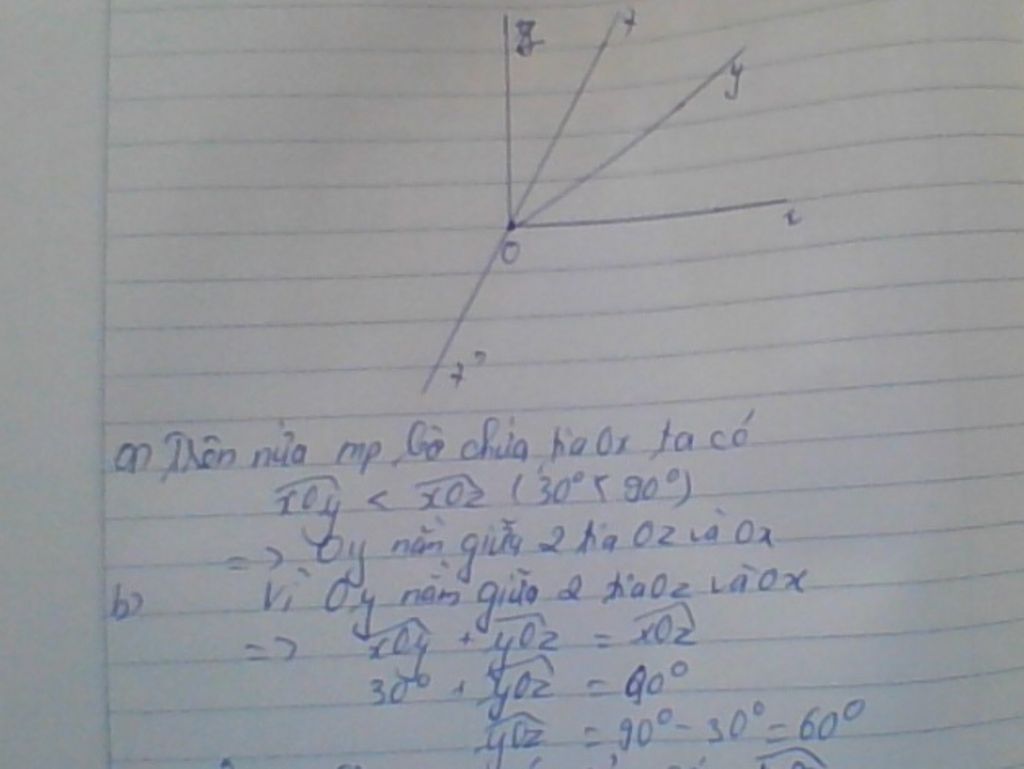 z
t
y
x
O
t'
a) Trên nửa mp bờ chứa tia Ox ta có
xOy < xOz (30° < 90°)
=> Oy nằm giữa 2 tia Oz và Ox
b) Vì Oy nằm giữa 2 tia Oz và Ox
=> xOy + yOz = xOz
30° + yOz = 90°
yOz = 90° - 30° = 60°